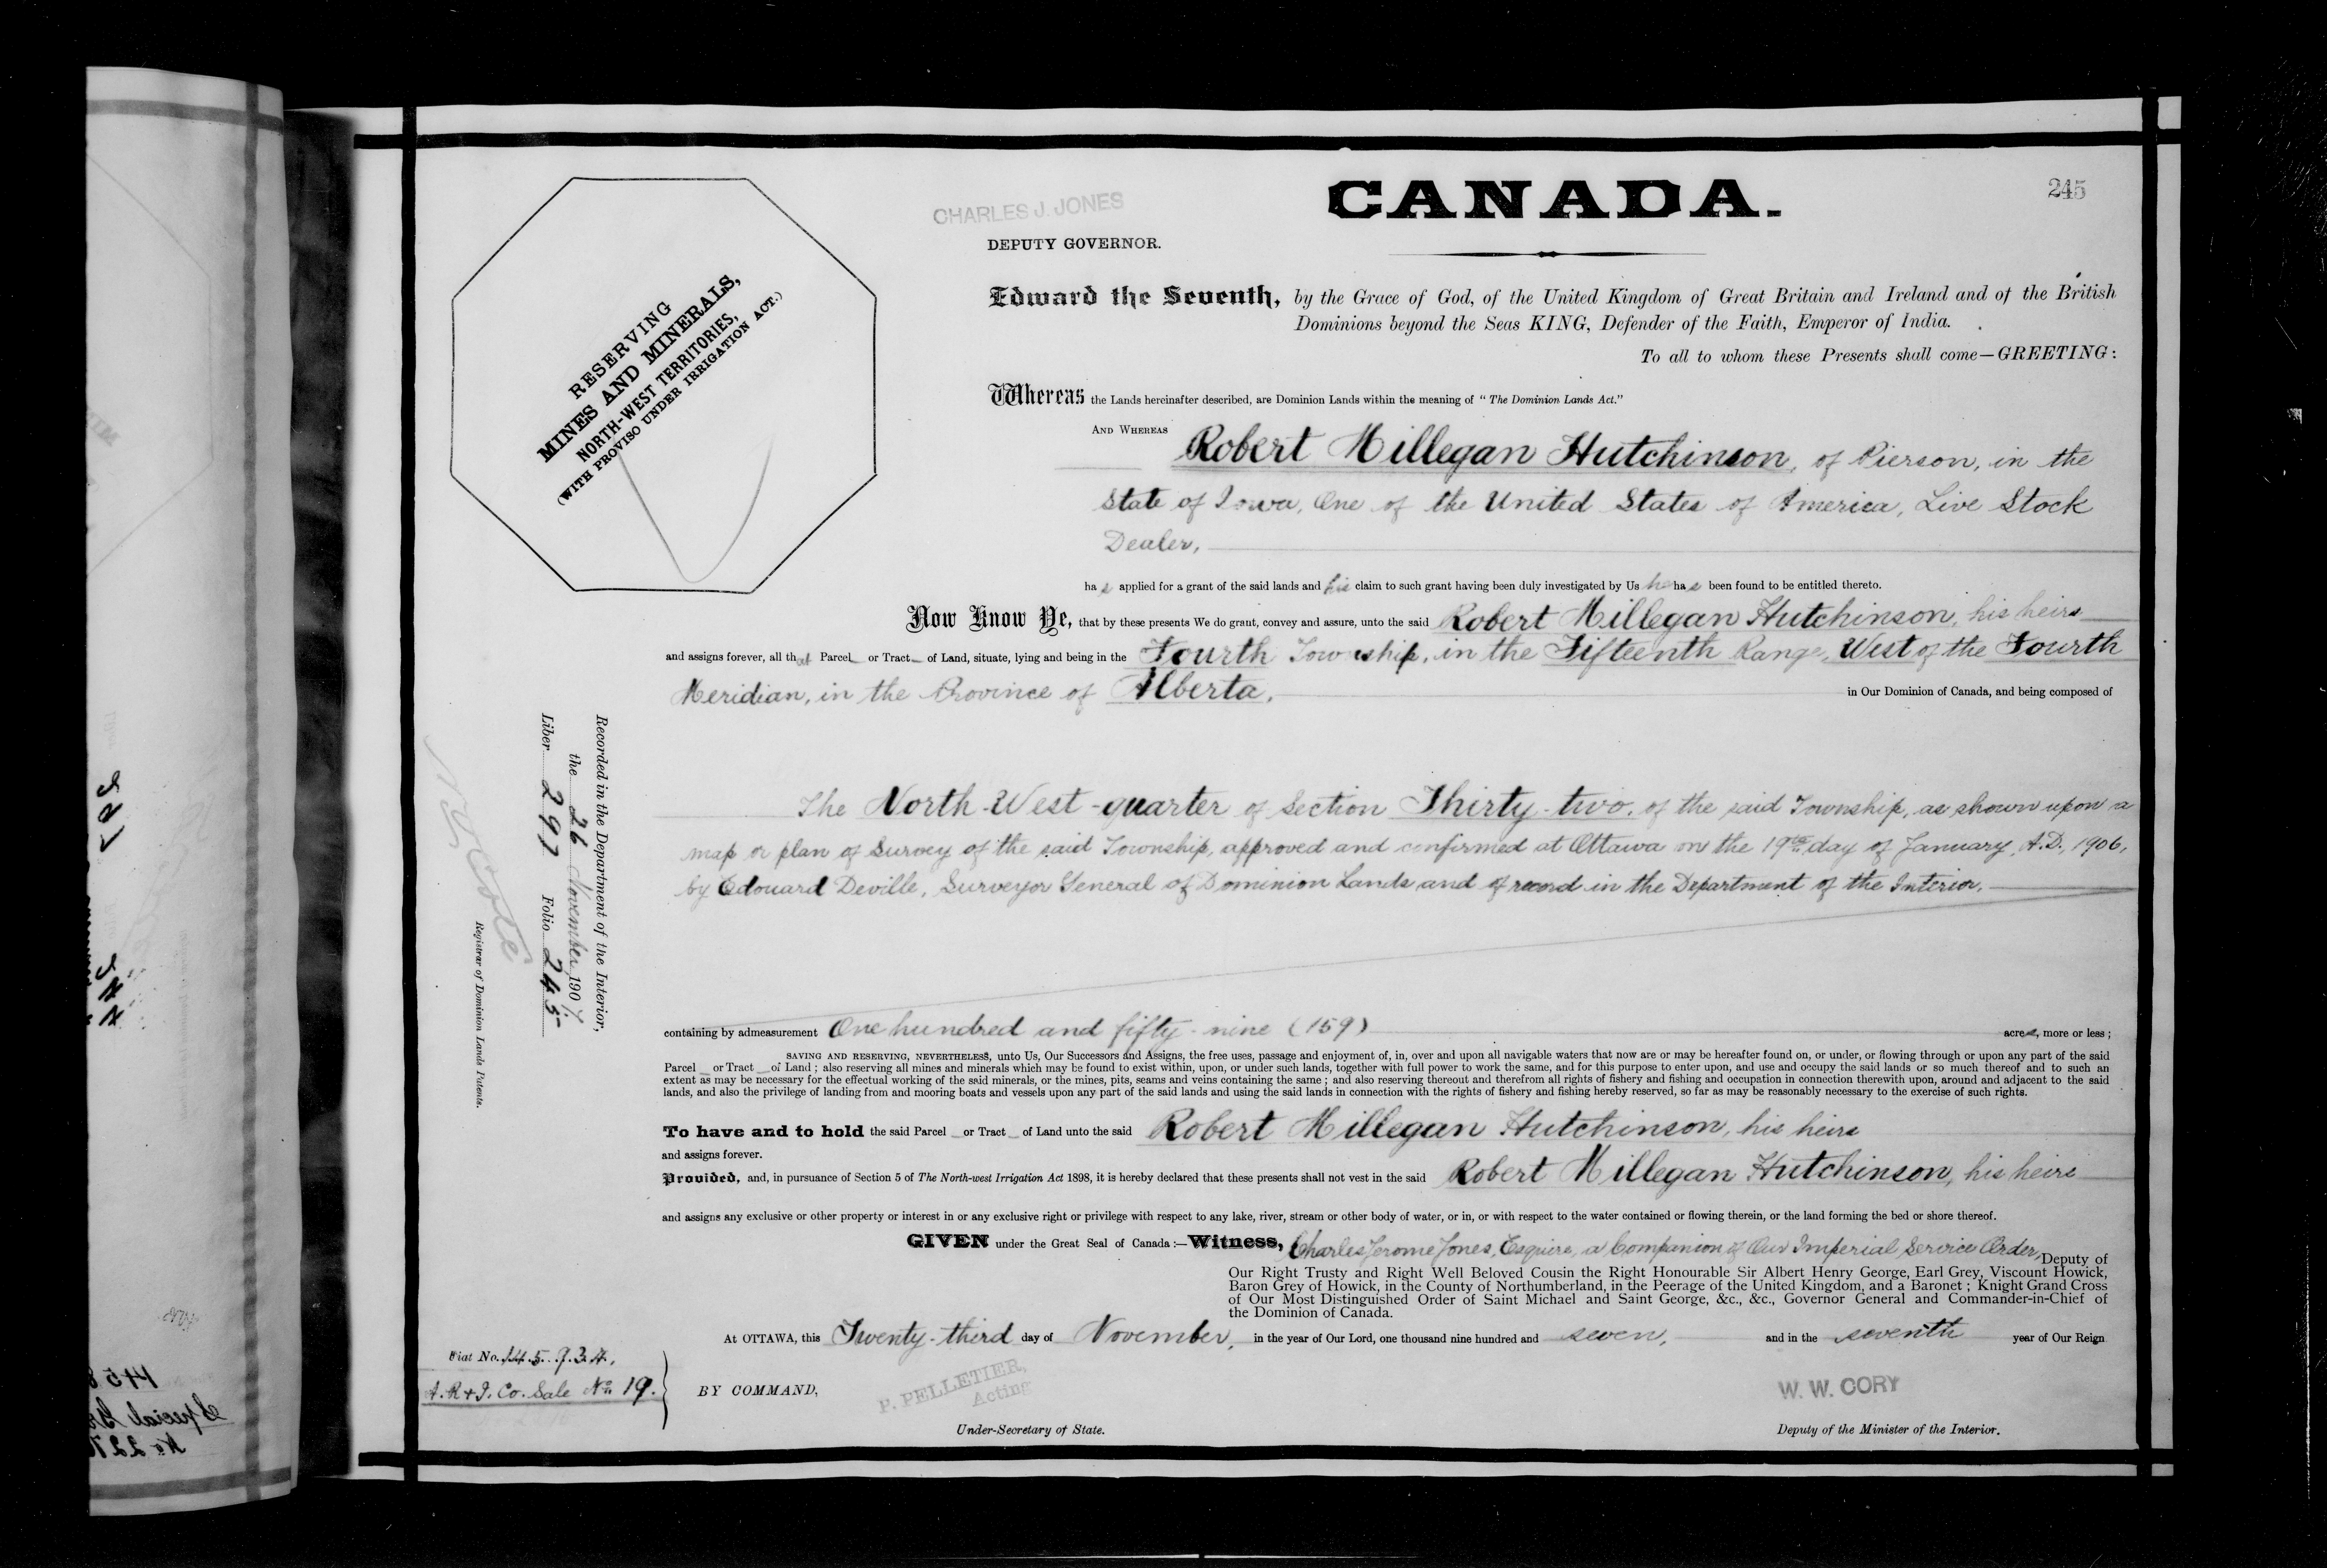 245
CHARLES J. JONES
CANADA.
DEPUTY GOVERNOR.
RESERVING
MINES AND MINERALS,
NORTH-WEST TERRITORIES,
(WITH PROVISO UNDER IRRIGATION ACT.)
Edward the Seventh, by the Grace of God, of the United Kingdom of Great Britain and Ireland and of the British
Dominions beyond the Seas KING, Defender of the Faith, Emperor of India.
To all to whom these Presents shall come—GREETING:
Whereas the Lands hereinafter described, are Dominion Lands within the meaning of "The Dominion Lands Act."
AND WHEREAS Robert Millegan Hutchinson, of Pierson, in the
State of Iowa, One of the United States of America, Live Stock
Dealer,
has applied for a grant of the said lands and his claim to such grant having been duly investigated by Us he has been found to be entitled thereto.
Now Know Ye, that by these presents We do grant, convey and assure, unto the said Robert Millegan Hutchinson, his heirs
and assigns forever, all that Parcel or Tract of Land, situate, lying and being in the Fourth Township, in the Fifteenth Range, West of the Fourth
Meridian, in the Province of Alberta, in Our Dominion of Canada, and being composed of
The North-West-quarter of Section Thirty-two, of the said Township, as shown upon a
map or plan of Survey of the said Township, approved and confirmed at Ottawa on the 19th day of January, A.D., 1906,
by Edouard Deville, Surveyor General of Dominion Lands and of record in the Department of the Interior.
Recorded in the Department of the Interior,
the 26 November, 1907
Liber 297 Folio 245
N.O. Coté
Registrar of Dominion Lands Patents.
containing by admeasurement One hundred and fifty-nine (159) acres, more or less;
SAVING AND RESERVING, NEVERTHELESS, unto Us, Our Successors and Assigns, the free uses, passage and enjoyment of, in, over and upon all navigable waters that now are or may be hereafter found on, or under, or flowing through or upon any part of the said
Parcel or Tract of Land; also reserving all mines and minerals which may be found to exist within, upon, or under such lands, together with full power to work the same, and for this purpose to enter upon, and use and occupy the said lands or so much thereof and to such an
extent as may be necessary for the effectual working of the said minerals, or the mines, pits, seams and veins containing the same; and also reserving thereout and therefrom all rights of fishery and fishing and occupation in connection therewith upon, around and adjacent to the said
lands, and also the privilege of landing from and mooring boats and vessels upon any part of the said lands and using the said lands in connection with the rights of fishery and fishing hereby reserved, so far as may be reasonably necessary to the exercise of such rights.
To have and to hold the said Parcel or Tract of Land unto the said Robert Millegan Hutchinson, his heirs
and assigns forever.
Provided, and, in pursuance of Section 5 of The North-west Irrigation Act 1898, it is hereby declared that these presents shall not vest in the said Robert Millegan Hutchinson, his heirs
and assigns any exclusive or other property or interest in or any exclusive right or privilege with respect to any lake, river, stream or other body of water, or in, or with respect to the water contained or flowing therein, or the land forming the bed or shore thereof.
GIVEN under the Great Seal of Canada:—Witness, Charles Jerome Jones, Esquire, a Companion of Our Imperial Service Order, Deputy of
Our Right Trusty and Right Well Beloved Cousin the Right Honourable Sir Albert Henry George, Earl Grey, Viscount Howick,
Baron Grey of Howick, in the County of Northumberland, in the Peerage of the United Kingdom, and a Baronet; Knight Grand Cross
of Our Most Distinguished Order of Saint Michael and Saint George, &c., &c., Governor General and Commander-in-Chief of
the Dominion of Canada.
At OTTAWA, this Twenty-third day of November, in the year of Our Lord, one thousand nine hundred and seven, and in the seventh year of Our Reign
Fiat No. 145934.
A. R & I. Co. Sale No. 19.
BY COMMAND,
P. PELLETIER,
Acting
Under-Secretary of State.
W. W. CORY
Deputy of the Minister of the Interior.